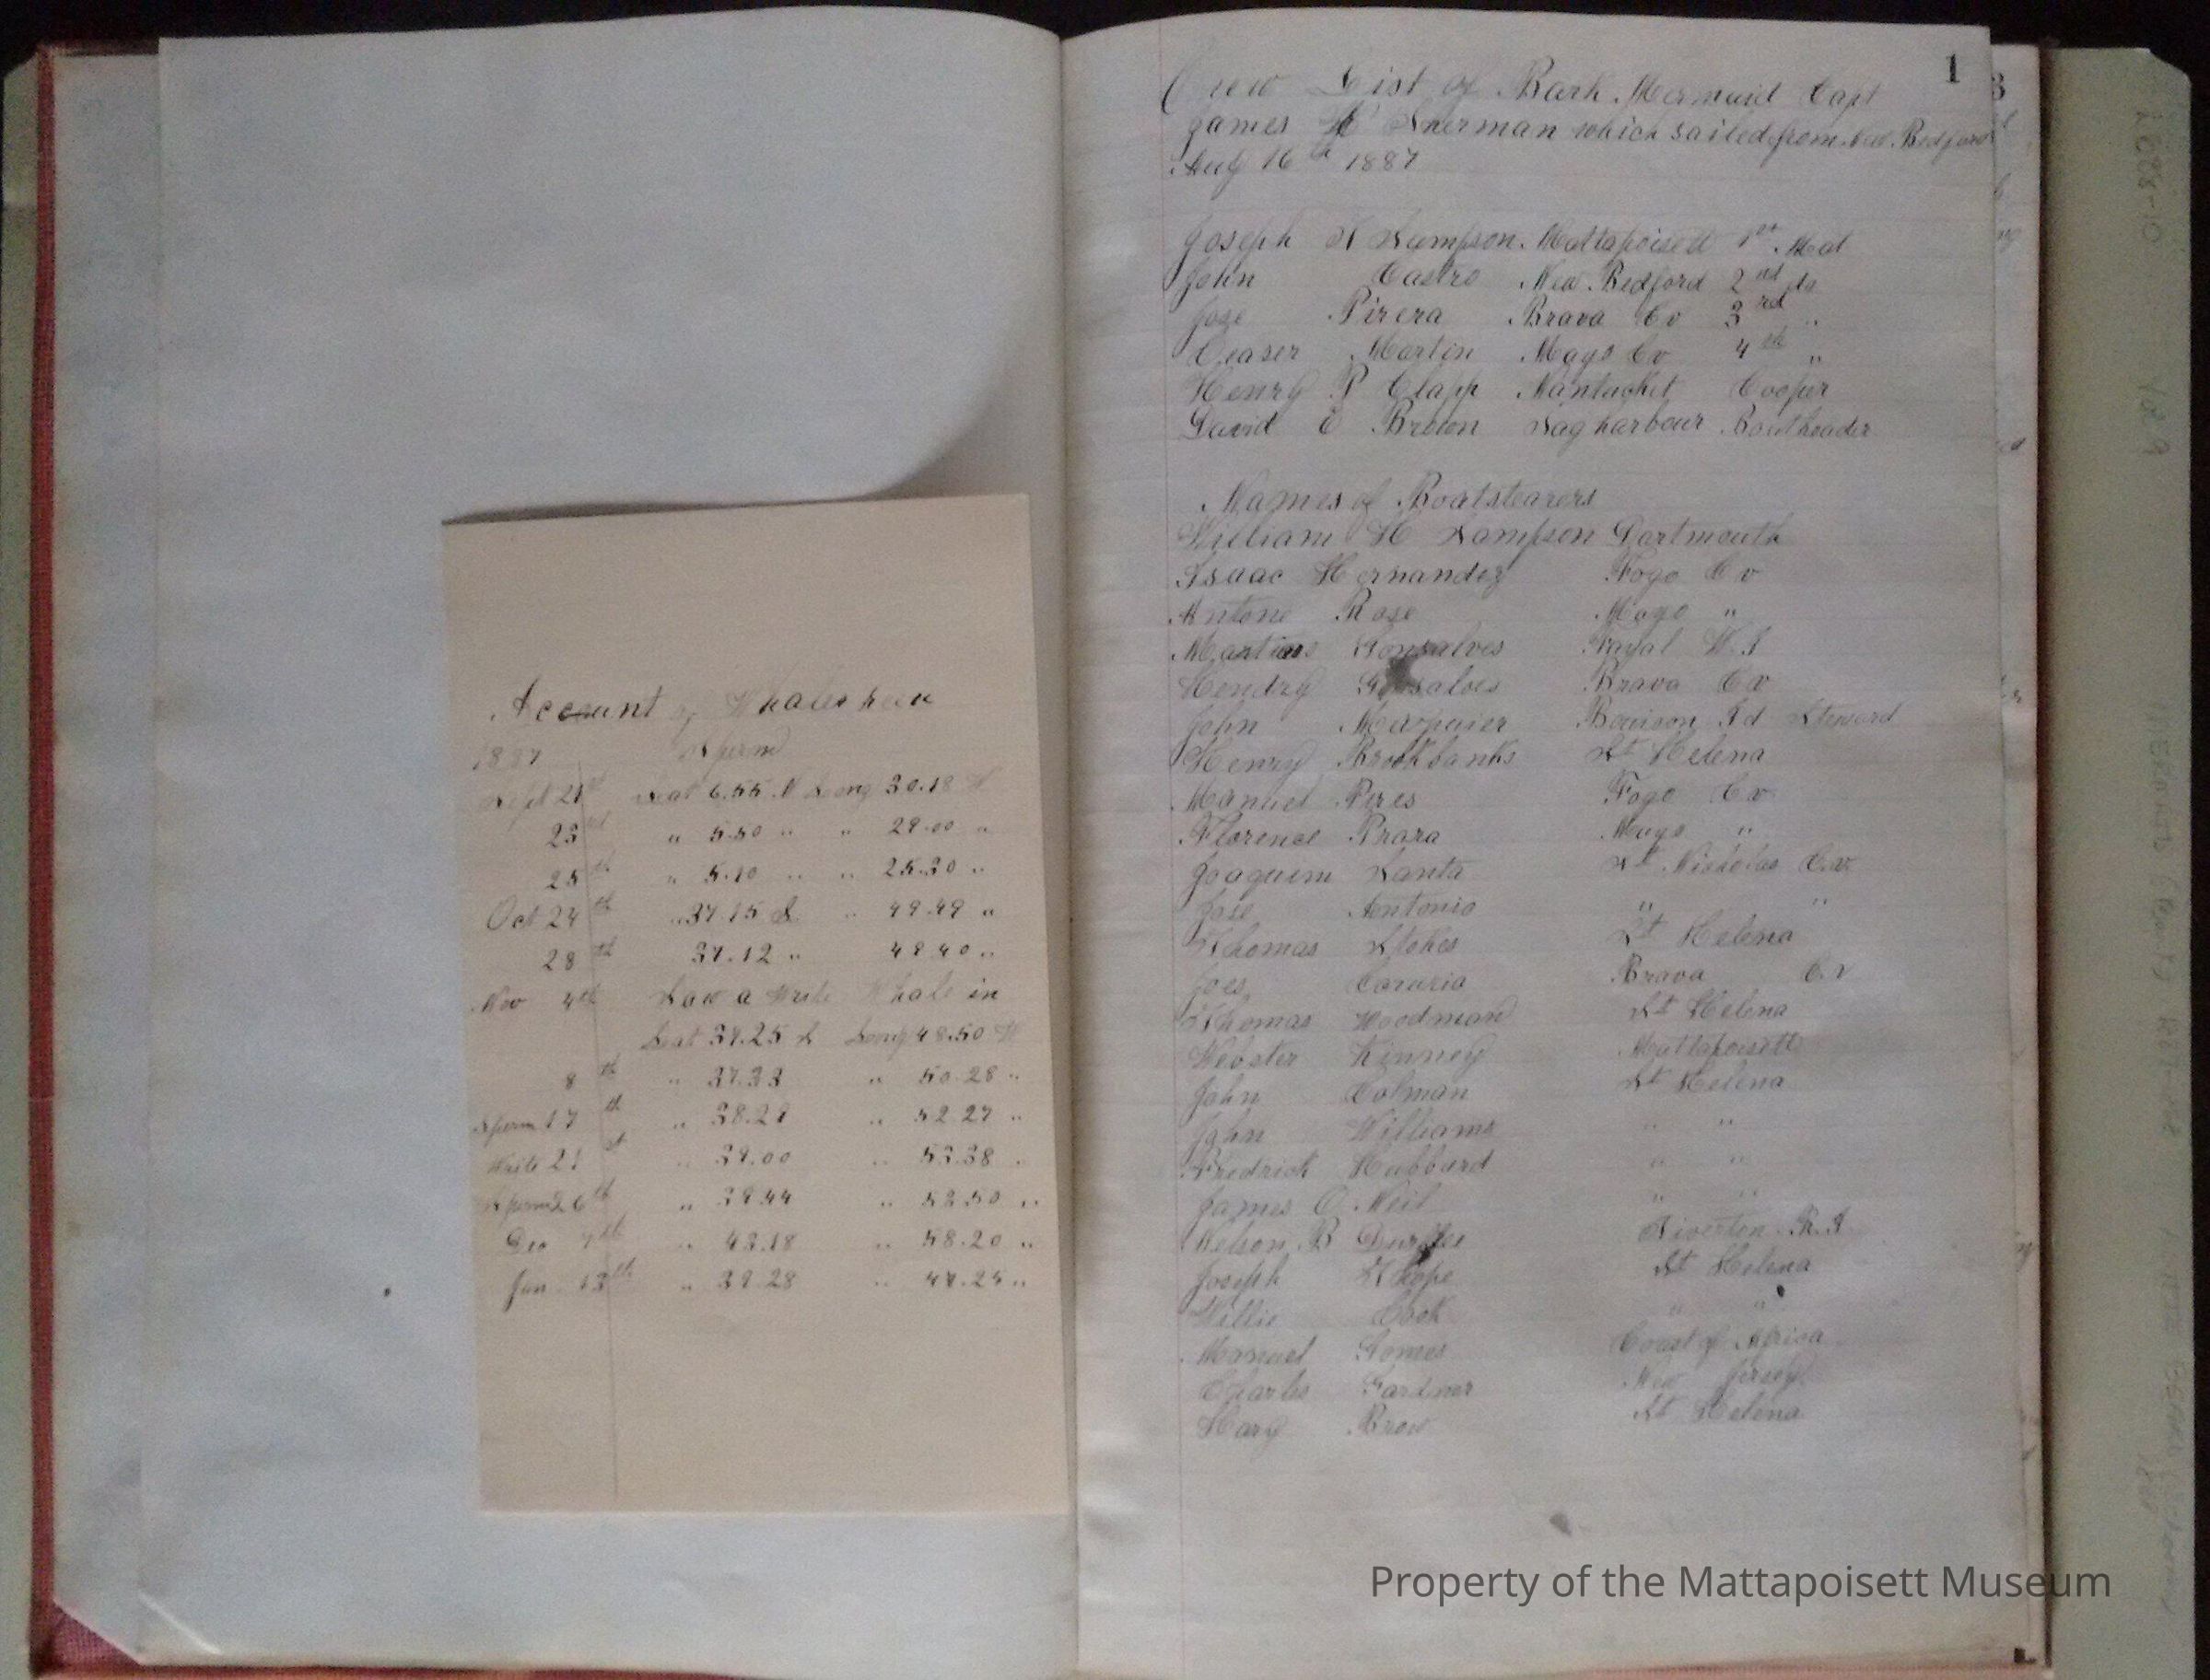 Account of Whales seen
1887 Sperm
Sept 21st Lat 6.55 N Long 30.18 W
23rd " 5.50 " " 29.00 "
25th " 5.10 " " 25.30 "
Oct 24th " 37.15 S " 49.49 "
28th 37.12 " 49.40 "
Nov 4th Saw a Write Whale in
Lat 39.25 S Long 48.50 W
8th " 37.33 " 50.28 "
Sperm 17th " 38.21 " 52.27 "
Write 21st " 39.00 " 53.38 "
Sperm 26th " 39.44 " 53.50 "
Dec 7th " 43.18 " 58.20 "
Jan 13th " 39.28 " 47.25 "
1
Crew List of Bark Mermaid Capt
James Sherman which sailed from New Bedford
Aug 16th 1887
Joseph H Sampson Mattapoisett 1st Mat
John Castro New Bedford 2nd do
Jose Pirera Brava Cv 3rd "
Ceaser Martin Mayo Cv 4th "
Henry P Clapp Nantucket Cooper
David E Brown Sagharbour Boatheader
Names of Boatstearers
William H Sampson Dartmouth
Isaac Hernandez Fogo Cv
Antone Rose Mayo "
Gonsalves Fayal W.I
Hendry Gonsalves Brava Cv
John Id Steward
Henry Brookbanks St Helena
Manuel Pires Fogo Cv
Florence Mayo "
Joaquim Santa St Nicholas C.v
Jose Antonio " "
Thomas Stokes St Helena
Joes Brava C.v
Thomas Woodman St Helena
Webster Kinney Mattapoisett
John Colman St Helena
John Williams " "
Fredrick Hubbard " "
James O Neil " "
Nelson B Tiverton R.I
Joseph Thope St Helena
Willie Cook " "
Manuel Gomes Coast of Africa
Charles Gardner New Jersey
Hary Brow St Helena
Property of the Mattapoisett Museum